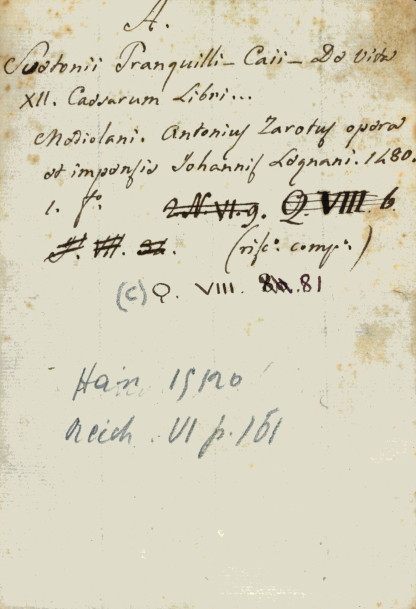 A.
Suetonii Tranquilli - Caii - De Vita
XII. Caesarum Libri...
Mediolani. Antonius Zarotus opera
et impensis Johannis Legnani. 1480.
1. f.º 2. N. VI. 9. Q. VIII. 6
(risc.º comp.º)
(c) Q. VIII. 81
Hain 15120
Reich. VI p. 161